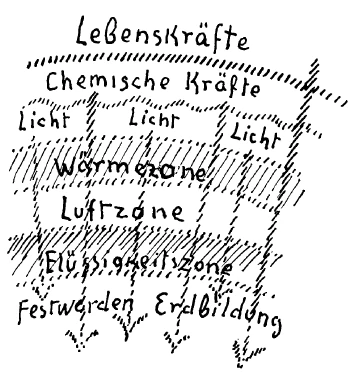 Lebenskräfte
Chemische Kräfte
Licht Licht Licht
Wärmezone
Luftzone
Flüssigkeitszone
Festwerden Erdbildung